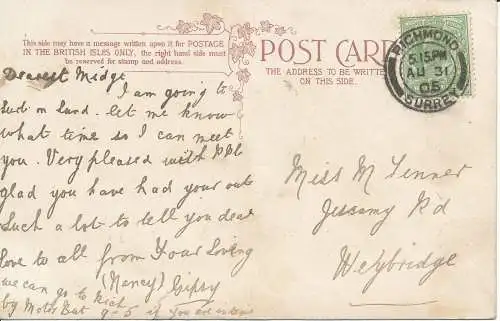 This side may have a message written upon it for POSTAGE
IN THE BRITISH ISLES ONLY, the right hand side must
be reserved for stamp and address.
POST CARD
THE ADDRESS TO BE WRITTEN
ON THIS SIDE.
RICHMOND
5.15PM
AU 31
05
SURREY
Dearest Midge
I am going to
on Sund. let me know
what time so I can meet
you. Very pleased with P.C.
glad you have had your outs
Such a lot to tell you dear
love to all from Your Loving
(Nancy) Gipsy
we can go to Rich
by Motor But 9-5 if you are
Miss M Jenner
Jessamy Rd
Weybridge